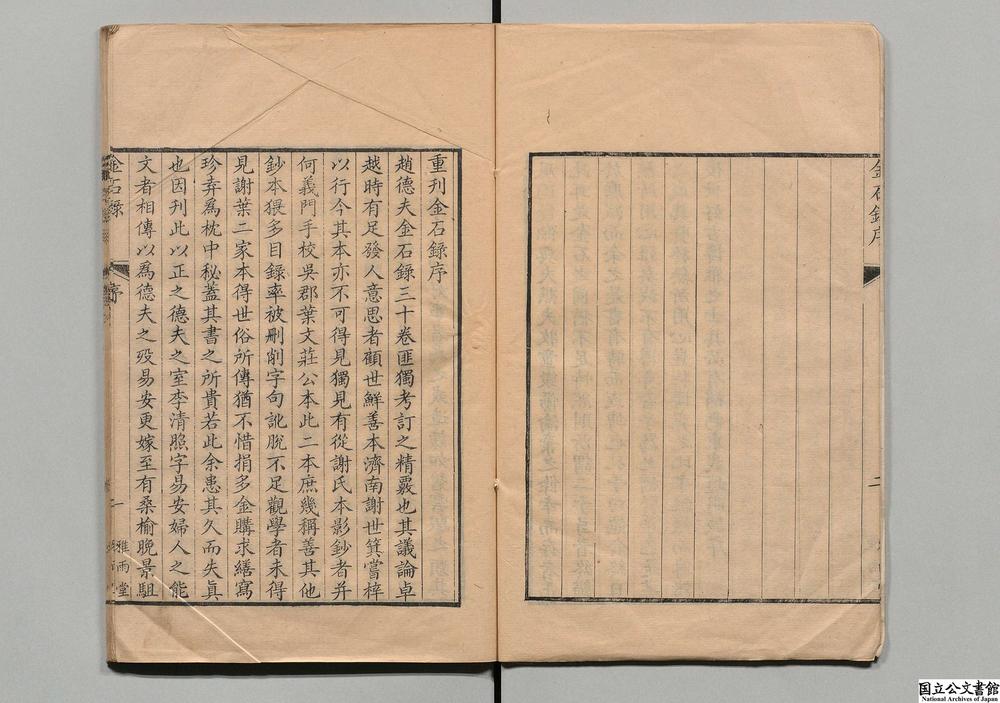 金石錄序
二
重刊金石錄序
趙德夫金石錄三十卷匪獨考訂之精覈也其議論卓
越時有足發人意思者顧世鮮善本濟南謝世箕嘗梓
以行今其本亦不可得見獨見有從謝氏本影鈔者并
何義門手校吳郡葉文莊公本此二本庶幾稱善其他
鈔本猥多目錄率被刪削字句訛脫不足觀學者未得
見謝葉二家本得世俗所傳猶不惜捐多金購求繕寫
珍弆爲枕中秘蓋其書之所貴若此余患其久而失眞
也因刊此以正之德夫之室李清照字易安婦人之能
文者相傳以爲德夫之歿易安更嫁至有桑榆晩景駔
金石錄
序
一
雅雨堂
国立公文書館
National Archives of Japan